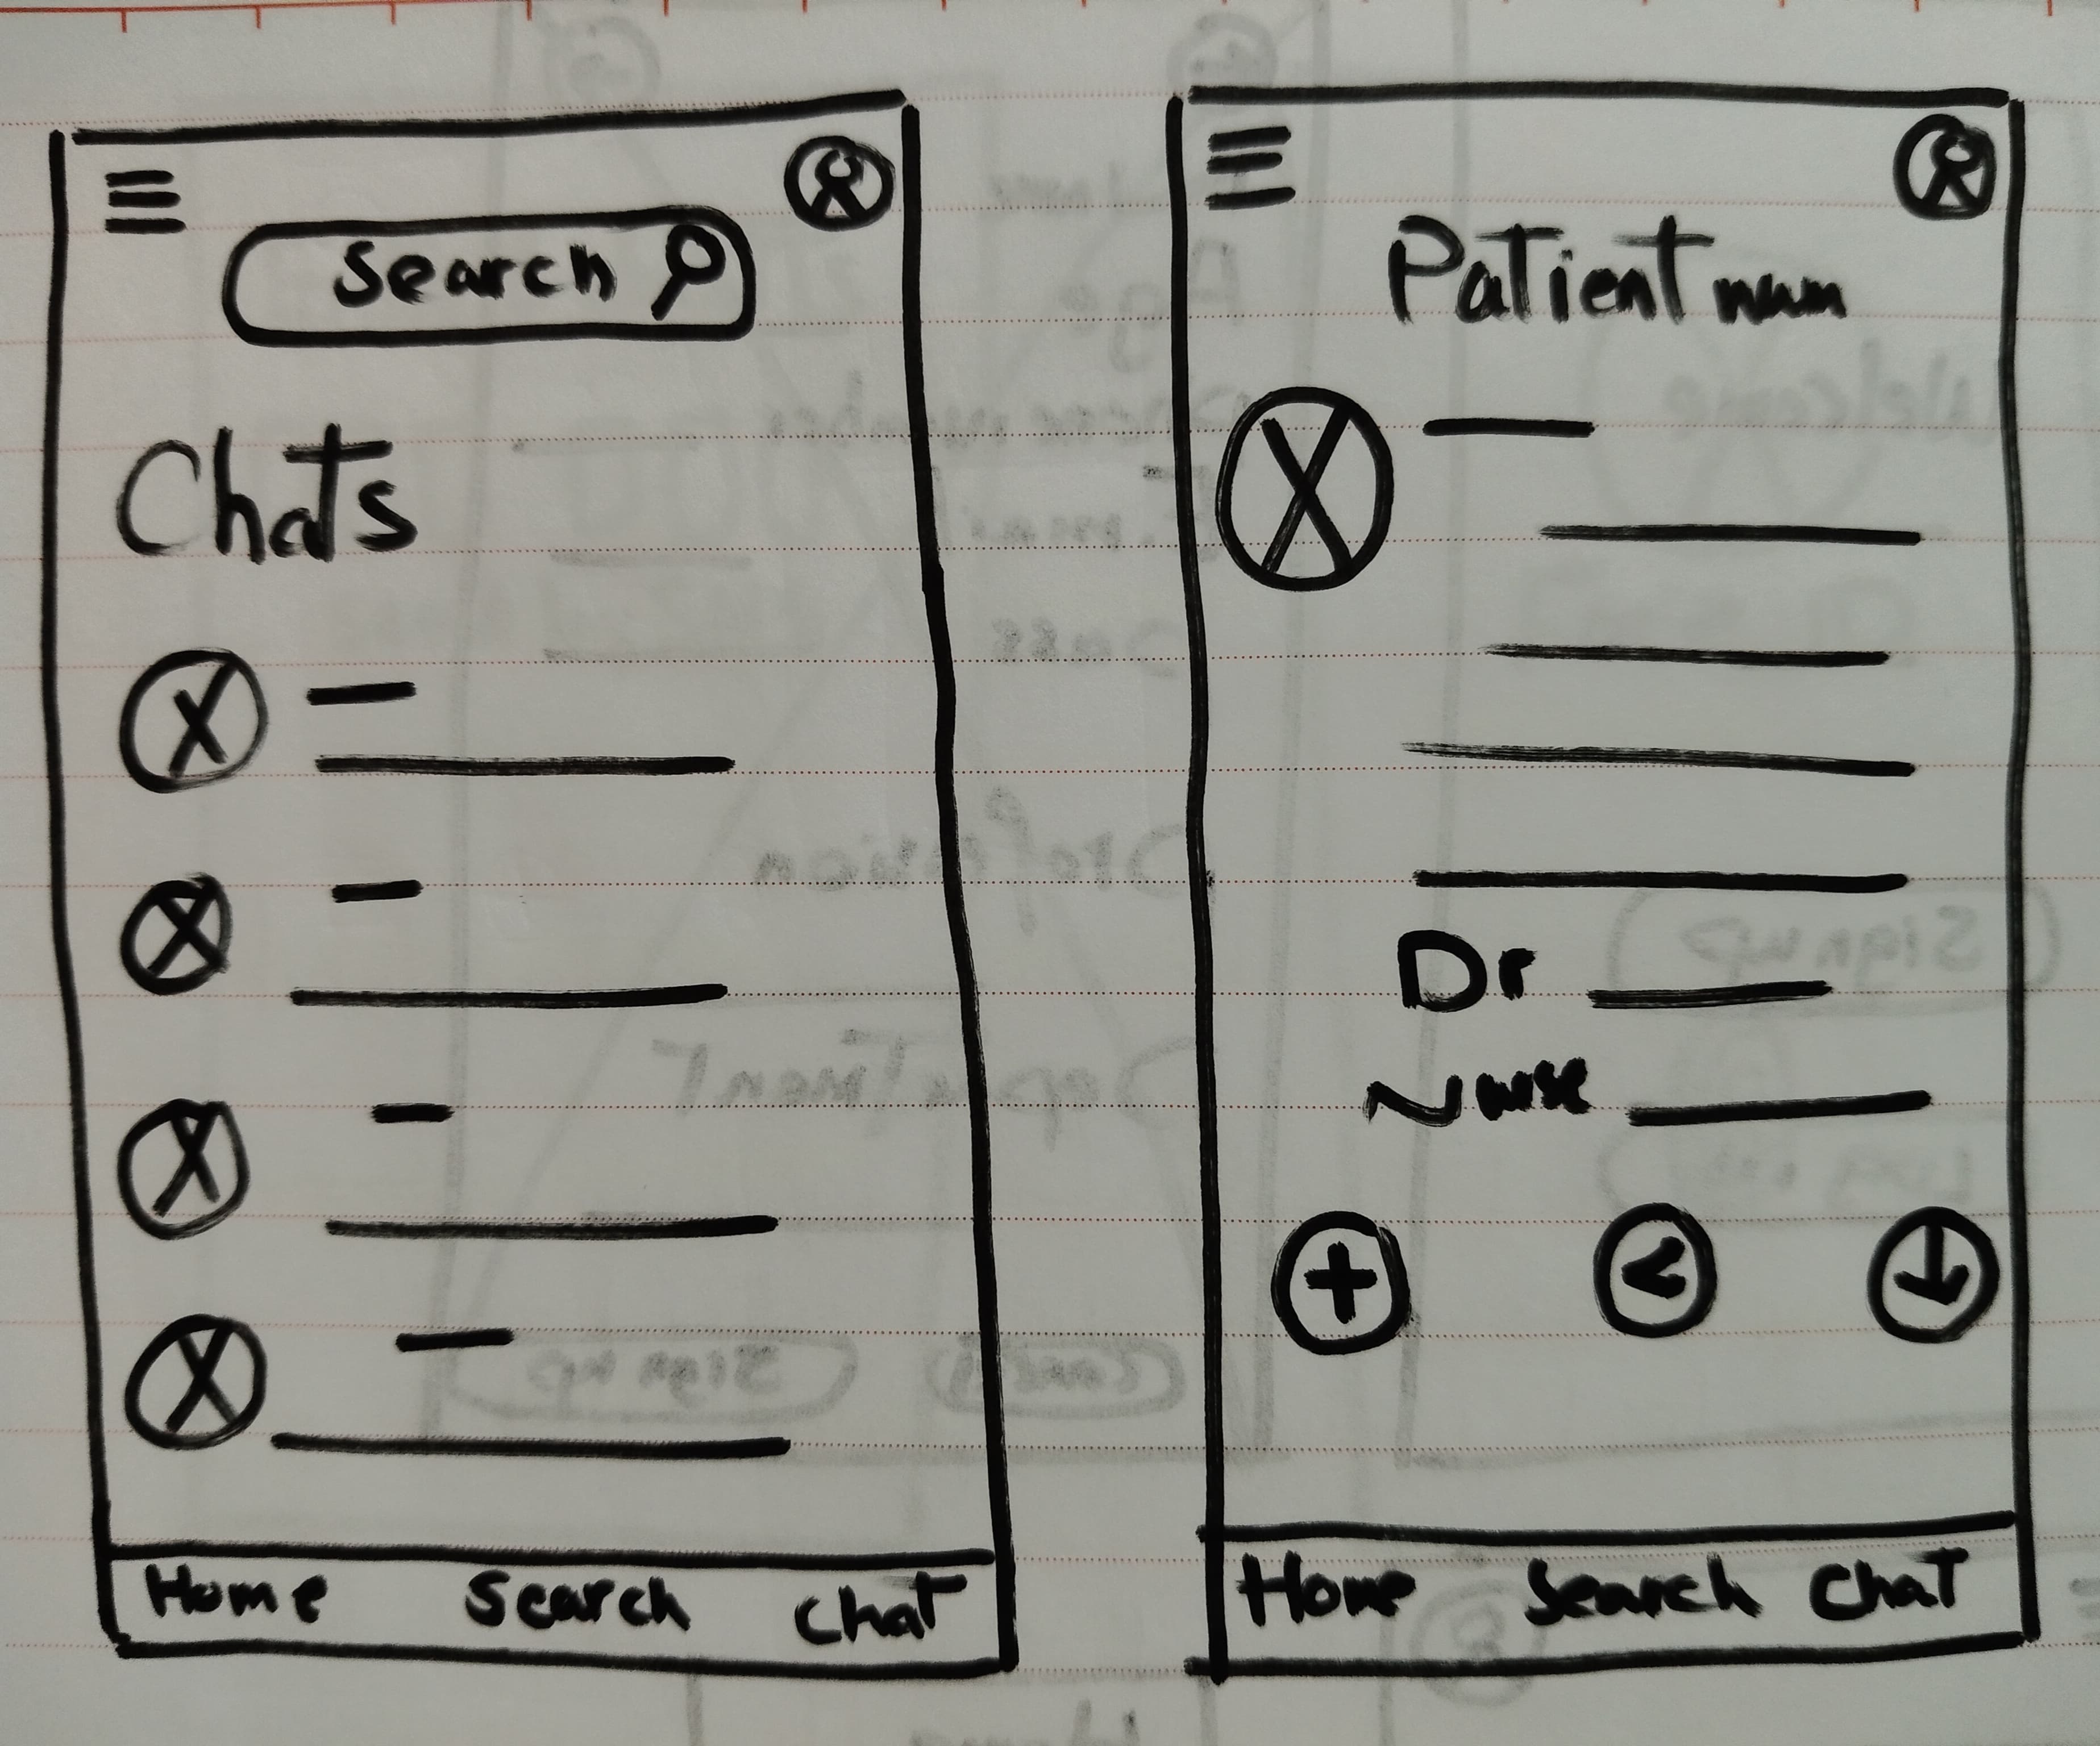 Search
Chats
Home Search Chat
Patient nam
Dr
Nurse
Home Search Chat